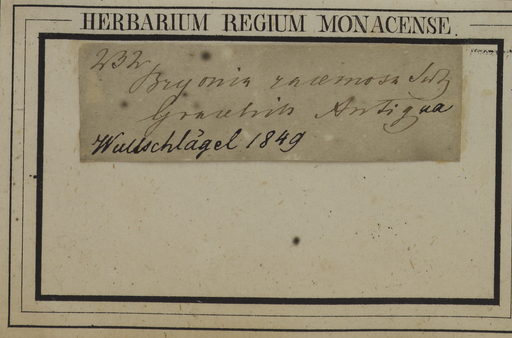 HERBARIUM REGIUM MONACENSE.
232
Bryonia racemosa Sw
Gracehill Antigua
Wullschlägel 1849